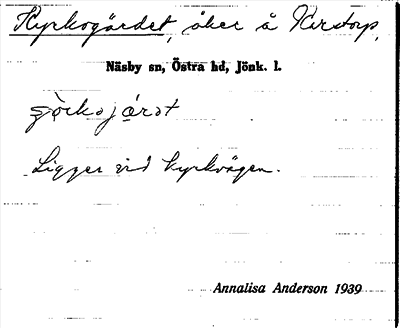 Kyrkogärdet, åker å Kvistorp,
Näsby sn, Östra hd, Jönk. l.
Ligger vid kyrkvägen.
Annalisa Anderson 1939